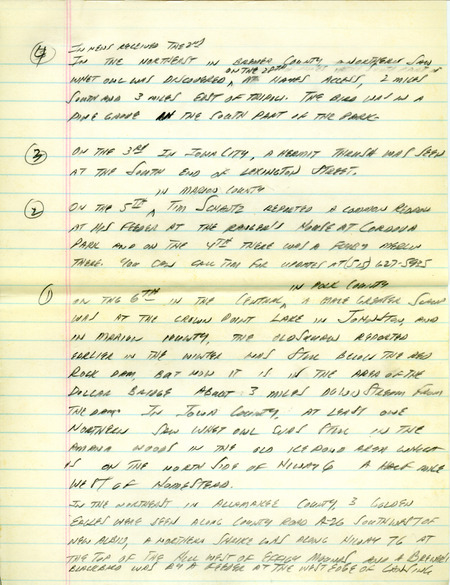 ④ IN NEWS RECEIVED THE 2nd
IN THE NORTHEAST IN BREMER COUNTY A NORTHERN SAW
WHET OWL WAS DISCOVERED, ON THE 20TH AT NAMES ACCESS, 2 MILES
SOUTH AND 3 MILES EAST OF TRIPOLI. THE BIRD WAS IN A
PINE GROVE IN THE SOUTH PART OF THE PARK.
③ ON THE 3RD IN IOWA CITY, A HERMIT THRUSH WAS SEEN
AT THE SOUTH END OF LEXINGTON STREET.
IN MARION COUNTY
② ON THE 5TH TIM SCHANTZ REPORTED A COMMON REDPOLL
AT HIS FEEDER AT THE RANGER'S HOUSE AT CORDOVA
PARK AND ON THE 4TH THERE WAS A MERLIN
THERE. YOU CAN CALL TIM FOR UPDATES AT (515) 627-5935
IN POLK COUNTY
① ON THE 6TH IN THE CENTRAL, A MALE GREATER SCAUP
WAS AT THE CROWN POINT LAKE IN JOHNSTON, AND
IN MARION COUNTY, THE OLDSQUAW REPORTED
EARLIER IN THE WINTER WAS STILL BELOW THE RED
ROCK DAM, BUT NOW IT IS IN THE AREA OF THE
DOLLAR BRIDGE ABOUT 3 MILES DOWNSTREAM FROM
THE DAM. IN IOWA COUNTY, AT LEAST ONE
NORTHERN SAW WHET OWL WAS STILL IN THE
AMANA WOODS IN THE OLD ICE POND AREA WHICH
IS ON THE NORTH SIDE OF HIWAY 6 A HALF MILE
WEST OF HOMESTEAD.
IN THE NORTHEAST IN ALLAMAKEE COUNTY, 3 GOLDEN
EAGLES WERE SEEN ALONG COUNTY ROAD A-26 SOUTHWEST OF
NEW ALBIN, A NORTHERN SHRIKE WAS ALONG HIWAY 76 AT
THE TOP OF THE HILL WEST OF EFFIGY MOUNDS AND A BREWER'S
BLACKBIRD WAS AT A FEEDER AT THE WEST EDGE OF LANSING